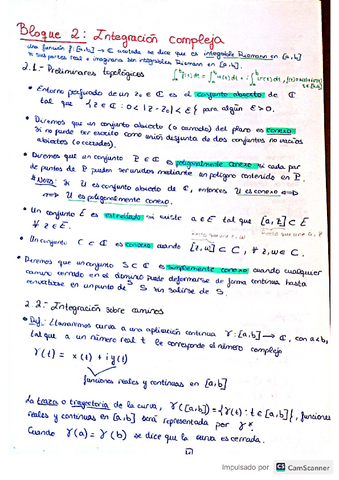 Bloque 2: Integración compleja
Una función f: [a,b] → ℂ acotada se dice que es integrable Riemann en [a,b]
si sus partes real e imaginaria son integrables Riemann en [a,b].
2.1.- Preliminares topológicos
• Entorno perforado de un z₀ ∈ ℂ es el conjunto abierto de ℂ
tal que {z ∈ ℂ : 0 < |z - z₀| < ε} para algún ε > 0.
• Diremos que un conjunto abierto (o cerrado) del plano es conexo
si no puede ser escrito como unión disjunta de dos conjuntos no vacíos
abiertos (o cerrados).
• Diremos que un conjunto P ⊂ ℂ es poligonalmente conexo si cada par
de puntos de P pueden ser unidos mediante un polígono contenido en P.
* Nota: Si U es conjunto abierto de ℂ, entonces U es conexo ⟺
U es poligonalmente conexo.
• Un conjunto E es estrellado si existe a ∈ E tal que [a,z] ⊂ E
∀ z ∈ E.
• Un conjunto C ⊂ ℂ es convexo cuando [z,w] ⊂ C, ∀ z,w ∈ C.
• Diremos que un conjunto S ⊂ ℂ es simplemente conexo cuando cualquier
camino cerrado en el dominio puede deformarse de forma continua hasta
convertirse en un punto de S sin salirse de S.
2.2.- Integración sobre caminos
• Def.: Llamaremos curva a una aplicación continua γ: [a,b] → ℂ, con a<b,
tal que a un número real t le corresponde el número complejo
γ(t) = x(t) + i y(t)
funciones reales y continuas en [a,b]
La traza o trayectoria de la curva, γ([a,b]) = {γ(t) : t ∈ [a,b]}, funciones
reales y continuas en [a,b] será representada por γ*.
Cuando γ(a) = γ(b) se dice que la curva es cerrada.
Impulsado por CS CamScanner